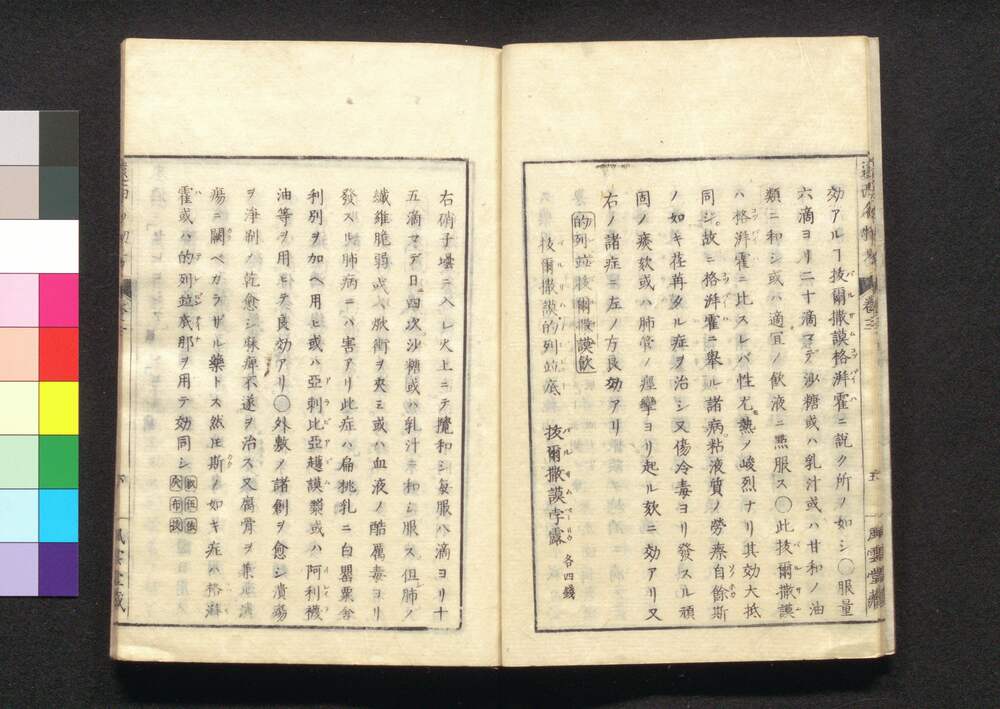 効アルヿ抜爾撒謨格湃霍ニ説ク所ノ如シ〇服量
六滴ヨリ二十滴マデ沙糖或ハ乳汁或ハ甘和ノ油
類ニ和シ或ハ適宜ノ飲液ニ点服ス〇此抜爾撒謨
ハ格湃霍ニ比スレバ性尤熱ノ峻烈ナリ其効大抵
同シ故ニ格湃霍ニ挙ル諸病粘液質ノ労瘵自餘斯
ノ如キ荏苒タル症ヲ治シ又傷冷毒ヨリ發スル頑
固ノ痰欬或ハ肺管ノ痙攣ヨリ起ル欬ニ効アリ又
右ノ諸症ニ左ノ方良効アリ
的列並抜爾撒謨飲
抜爾撒謨的列並底 抜爾撒謨孛露 各四錢
右硝子堪ニ入レ火上ニテ攪和シ毎服八滴ヨリ十
五滴マデ日四次沙糖或ハ乳汁ニ和シ服ス但肺ノ
纖維脆弱或ハ焮衝ヲ夾ミ或ハ血液ノ酷厲毒ヨリ
發スル肺病ニハ害アリ此症ハ扁桃乳ニ白罌粟舎
利別ヲ加ヘ用ヒ或ハ亞剌比亞護謨類或ハ阿利襪
油等ヲ用ヒテ良効アリ〇外敷ノ諸創ヲ愈シ潰瘍
ヲ淨刷ノ乾愈シ麻痺不遂ヲ治ス又腐骨ヲ兼
瘍ニ闕ベガラザル藥トス然𪜈斯ノ如キ症ハ格湃
霍或ハ的列並底那ヲ用テ効同シ
巻三
風雲堂藏